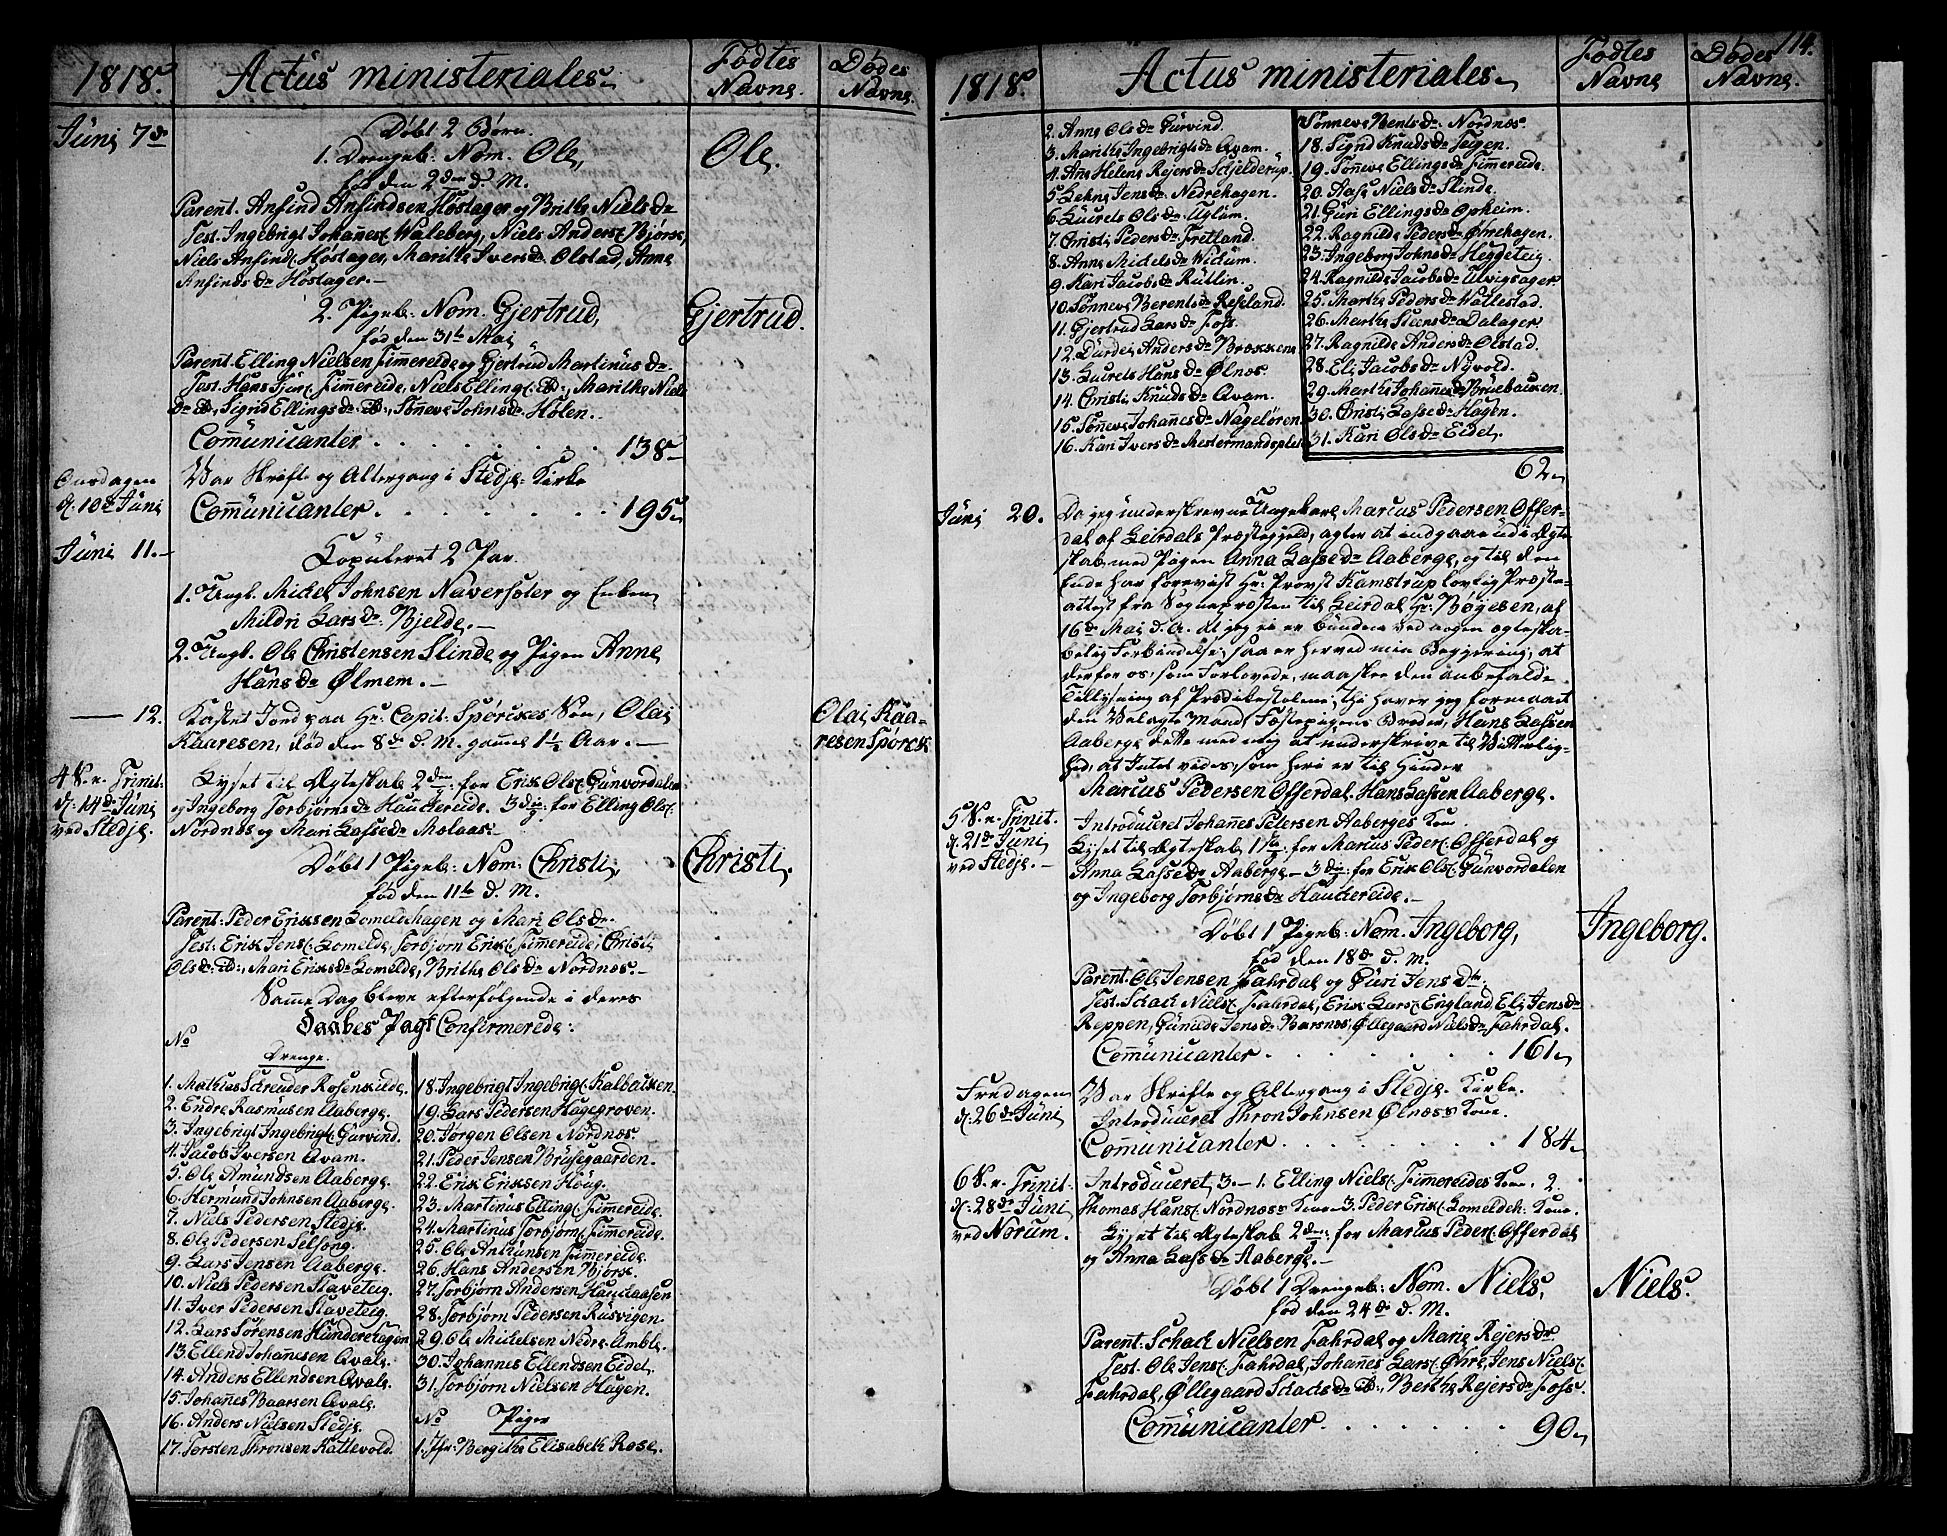 1818. Actus ministeriales. Fødtes Navne. Dødes Navne.
Juni 7de
Døbt 2 Børn.
1. Drengeb: Nom. Ole, Ole.
fød den 2den d. M.
Parent. Anfind Anfindsen Høstager og Brithe Niels Dr
Test. Ingebrigt Johannes. Waleberg, Niels Anders. Bjorse,
Niels Anfinds. Høstager, Marithe Ivers Dr. Olstad, Anne
Anfinds Dr Høstager.-
2. Pigeb: Nom. Gjertrud, Gjertrud.
fød den 31te Mai
Parent. Elling Nielsen Fimmereide og Gjertrud Martinus Dr
Test. Hans Fimmereide, Niels Elling. ib:, Marithe Niels
Dr ib, Sigrid Ellings Dr ib:, Sønneve Johns Dr Holen.-
Communicanter . . . . . . 138
Onsdagen
d. 10de Juni
Var Skrifte og Altergang i Stedje Kirke
Communicanter . . . . . . 195
Juni 11.-
Copuleret 2 Par.
1. Ungk. Mickel Johnsen Navarsæter og Enken
Mildri Lars Dr. Bjelde.-
2. Ungk. Ole Christensen Slinde og Pigen Anne
Hans Dr Ølmem.-
— 12.
Kastet Jord paa Hr. Capit. Spørckes Søn, Olai
Kaaresen, død den 8de d. M. gamel 1½ Aar.-
Olai Kaaresen Spørck
4 S. e. Trinit:
d. 14de Juni
ved Stedje.
Lyset til Ægteskab 2den for Erik Ols. Gunvordalen
og Ingeborg Torbjørns Dr Hauckereide. 3die for Elling Ols.
Nordnes og Mari Lasse Dr Molaas.
Døbt 1 Pigeb: Nom: Christi, Christi.
fød den 11te d. M.
Parent: Peder Eriksen Lomeldehagen og Mari Ols Dr.
Test. Erik Jens. Lomelde, Torbjørn Erik. Fimmereide, Christi
Ols Dr. ib:, Mari Eriks Dr Lomelde, Brithe Ols Dr Nordnes.-
Samme Dag bleve efterfølgende i deres
Daabes Pagt Confirmerede:
No
Drenge.
1. Mathias Schreuder Rosenkilde
2. Endre Rasmusen Aaberge.
3. Ingebrigt Ingebrigt. Gurvind.
4. Jacob Iversen Qvam.
5. Ole Amundsen Aaberge.
6. Hermund Johnsen Aaberge.
7. Niels Pedersen Stedje.
8. Ole Pedersen Selseng.
9. Lars Jensen Aaberge.
10. Niels Pedersen Slaveteig.
11. Iver Pedersen Slaveteig.
12. Lars Sørensen Hunderehagen
13. Ellend Johannesen Qvale.
14. Anders Ellendsen Qvale.
15. Johannes Baarsen Qvale.
16. Anders Nielsen Stedje.
17. Torsten Thronsen Kattevold.
18. Ingebrigt Ingebrigt. Kalbacken.
19. Lars Pedersen Hagegroven.
20. Jørgen Olsen Nordnæs.
21. Peder Jensen Brusegaarden.
22. Erik Eriksen Houg.
23. Martinus Elling. Fimmereide.
24. Martinus Torbjørn. Fimmereide.
25. Ole Anfinnsen Fimmereide.
26. Hans Andersen Bjorse.
27. Torbjørn Andersen Haucaasen
28. Torbjørn Pedersen Rusvigen
29. Ole Mickelsen Nedre Amble.
30. Johannes Ellendsen Eidet.
31. Torbjørn Nielsen Hagen.
No Piger
1. Jfr: Bergithe Elisabeth Rose.
114.
1818. Actus ministeriales. Fødtes Navne Dødes Navne.
2. Anne Ols Dr Gurvind.
3. Marithe Ingebrigts Dr Qvam.
4. Ane Helene Rejers Dr Schjelderup.
5. Lehne Jens Dr. Nedrehagen.
6. Gurets Ols Dr. Uglum.
7. Christi Peders Dr Fretland.
8. Anne Mickels Dr Wichum.
9. Kari Jacobs Dr Rutlin.
10. Sønneve Berents Dr Reseland.
11. Gjertrud Lars Dr Foss.
12. Durdei Anders Dr Brekkene
13. Gurets Hans Dr Ølnæs.
14. Christi Knuds Dr Qvam.
15. Sønneve Johannes Dr Nageløren
16. Kari Ivers Dr Mestermandsplet
Sønneve Bents Dr. Nordnæs.
18. Sigrid Knuds Dr Teigen.
19. Sønneve Ellings Dr Fimmereide.
20. Aase Niels Dr Slinde.
21. Guri Ellings Dr Opheim.
22. Ragnilde Peders Dr Øvrehagen.
23. Ingeborg Johns Dr Heggeteig.
24. Ragnilde Jacobs Dr Ulvigsager
25. Marthe Peders Dr Wallestad.
26. Marthe Steens Dr Dalager
27. Ragnilde Anders Dr Olstad.
28. Eli Jacobs Dr Nyvold.
29. Marthe Johannes Dr Bruebacken.
30. Christi Lasse Dr Hagen.
31. Kari Ols Dr Eidet.
62
Juni 20.
Da jeg underskrevne Ungekarl Marcus Pedersen Offerdal
af Leirdals Præstegjeld, agter at indgaae udi Ægteskab
med Pigen Anna Lasse Dr Aaberge, og til den
Ende har forevist Hr: Provst Kamstrup lovlig Præsteattest
fra Sognepræsten til Leirdal Hr: Bøyesen, af
16de Mai d. A. at jeg ei er bunden ved nogen ægteskabelig
Forbindelse; saa er herved min Begjering, at
derfor os, som Forlovede, maa skee den anbefalde
Tillysning af Prædikestolene, thi haver jeg formaaet
den Velagte Mand Fæstepigens Broder, Hans Lassen
Aaberge dette med mig at underskrive til Vitterlighed,
at Intet vides, som heri er til Hinder
Marcus Pedersen Offerdal. Hans Lassen Aaberge.
5 S. e. Trinit.
d. 21de Juni
ved Stedje.-
Introduceret Johannes Petersen Aaberges Kone.
Lyset til Ægteskab 1ste for Marcus Peder. Offerdal og
Anna Lasse Dr Aaberge - 3die for Erik Ols. Gunvordalen
og Ingeborg Torbjørns Dr Hauckereide.-
Døbt 1 Pigeb: Nom. Ingeborg, Ingeborg.
fød den 18de d. M.
Parent. Ole Jensen Fahrdal og Guri Jens Dtr
Test. Schack Niels. Fahrdal, Erik Lars. England Eli Jens Dr
Reppen, Gunilde Jens Dr Barsnes, Øllegaard Niels Dr Fahrdal.
Communicanter . . . . . . 161
Fredagen
d. 26de Juni
Var Skrifte og Altergang i Stedje Kirke.
Introduceret Thron Johnsen Ølnæss Kone.
Communicanter . . . . . . 184
6 S. e. Trinit.
d. 28de Juni
ved Norum.
Introduceret, 3 - 1. Elling Niels. Fimmereides Kone. 2.
Thomas Hans. Nordnæs Kone - 3. Peder Erik. Lomeldeh. Kone.
Lyset til Ægteskab 2den for Marcus Peder. Offerdal
og Anna Lass Dr Aaberge.-
Døbt 1 Drengeb: Nom. Niels, Niels.
fød den 24de d. M.
Parent. Schack Nielsen Fahrdal og Marie Rejers Dr
Test. Ole Jens. Fahrdal, Johannes Lars. Øhre, Jens Niels.
Fahrdal, Øllegaard Schacks Dr ib:, Berthe Rejers Dr Foss.
Communicanter . . . . . . 90